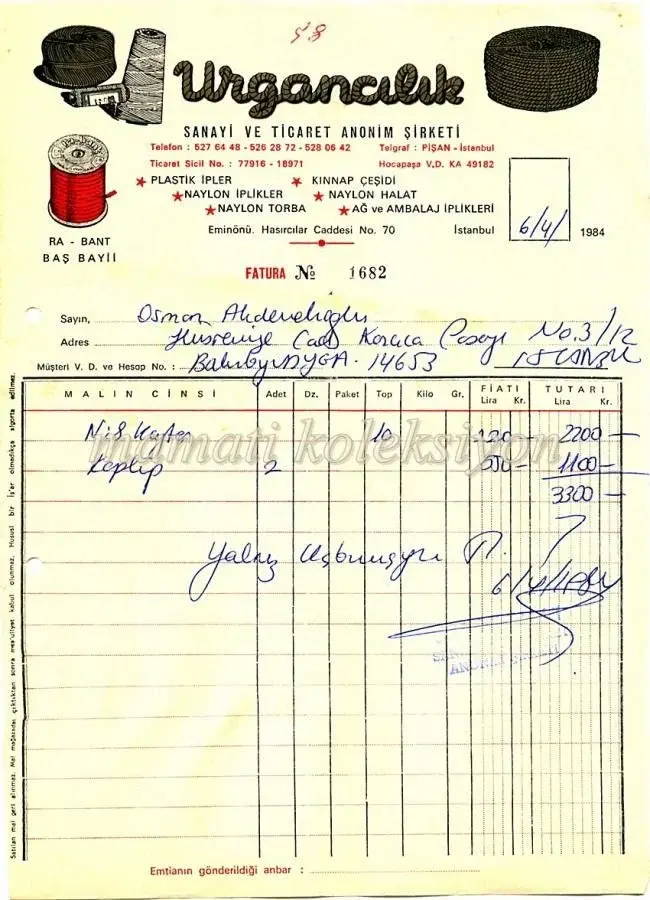 58
Urgancılık
SANAYİ VE TİCARET ANONİM ŞİRKETİ
Telefon : 527 64 48 - 526 28 72 - 528 06 42 Telgraf : PİŞAN - İstanbul
Ticaret Sicil No. : 77916 - 18971 Hocapaşa V.D. KA 49182
PLASTİK İPLER KINNAP ÇEŞİDİ
NAYLON İPLİKLER NAYLON HALAT
NAYLON TORBA AĞ ve AMBALAJ İPLİKLERİ
RA - BANT
BAŞ BAYİİ
Eminönü. Hasırcılar Caddesi No. 70 İstanbul 6/4/ 1984
FATURA № 1682
Sayın, Osman
Adres Cad No. 3/12
Müşteri V. D. ve Hesap No. : 14653 İSTANBUL
MALIN CİNSİ Adet Dz. Paket Top Kilo Gr. FİATI Lira Kr. TUTARI Lira Kr.
10 2200 —
2 550 — 1100 —
3300 —
mamati koleksiyon
Yalnız
6/4/1984
Emtianın gönderildiği anbar :
Satılan mal geri alınmaz. Mal mağazadan çıktıktan sonra mes'uliyet kabul olunmaz. Hususî bir iş'ar olmadıkça sigorta edilmez.